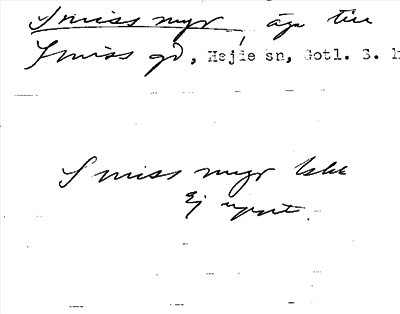 Smiss myr, äga till
Smiss gd, Hejde sn, Gotl. S. h
Smiss myr
Ej uppt.